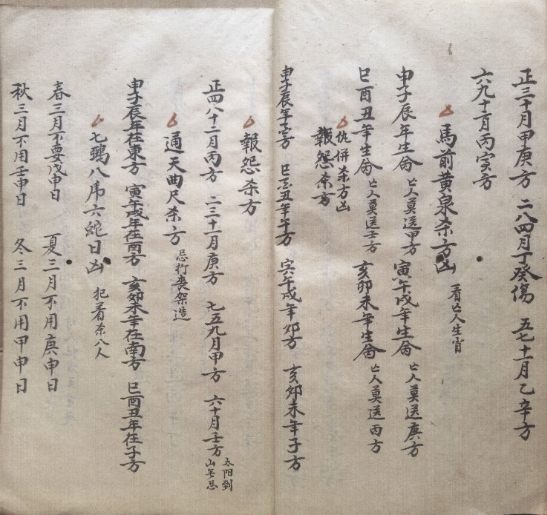 正三十月甲庚方 二八四月丁癸傷 五七十月乙辛方
六九十一月丙寅方
馬前黄泉杀方凶 看亡人生肖
申子辰年生命亡人莫送甲方 寅午戌年生命亡人莫送庚方
巳酉丑年生命亡人莫送壬方 亥卯未年生命亡人莫送丙方
仇併杀方凶
報怨杀方
申子辰年 方 巳 丑年午方 寅午戌年卯方 亥卯未年子方
報怨杀方
正四八十二月丙方 二三十一月庚方 七五九月甲方 六十月壬方 太阳到山不忌
通天曲尺杀方 忌行喪架造
申子辰年在東方 寅午戌年在南方 亥卯未年在南方 巳酉丑年在子方
七鴉八虎六蛇日凶 犯者杀八人
春三月不要戊申日 夏三月不用庚申日
秋三月不用壬申日 冬三月不用甲申日